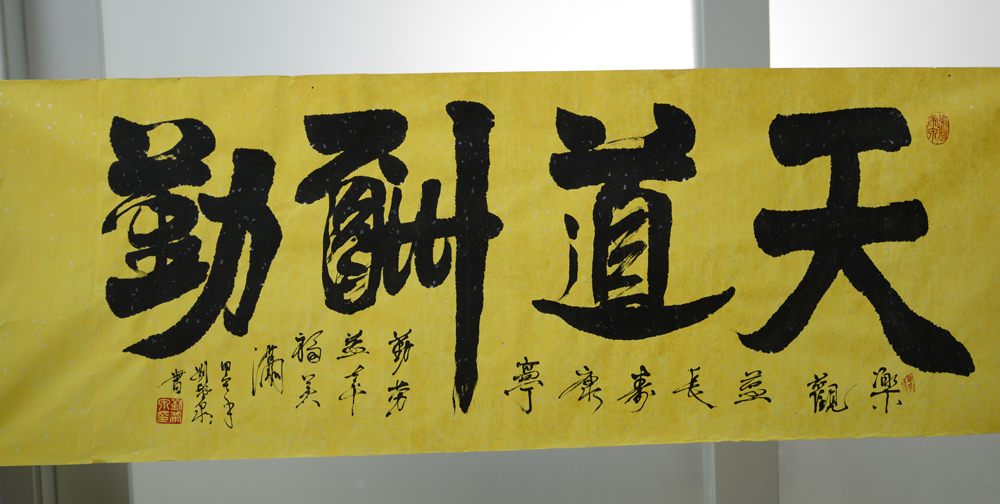 天道酬勤
樂觀益長壽康寧
勤勞
益幸
福美
滿
甲午年
書